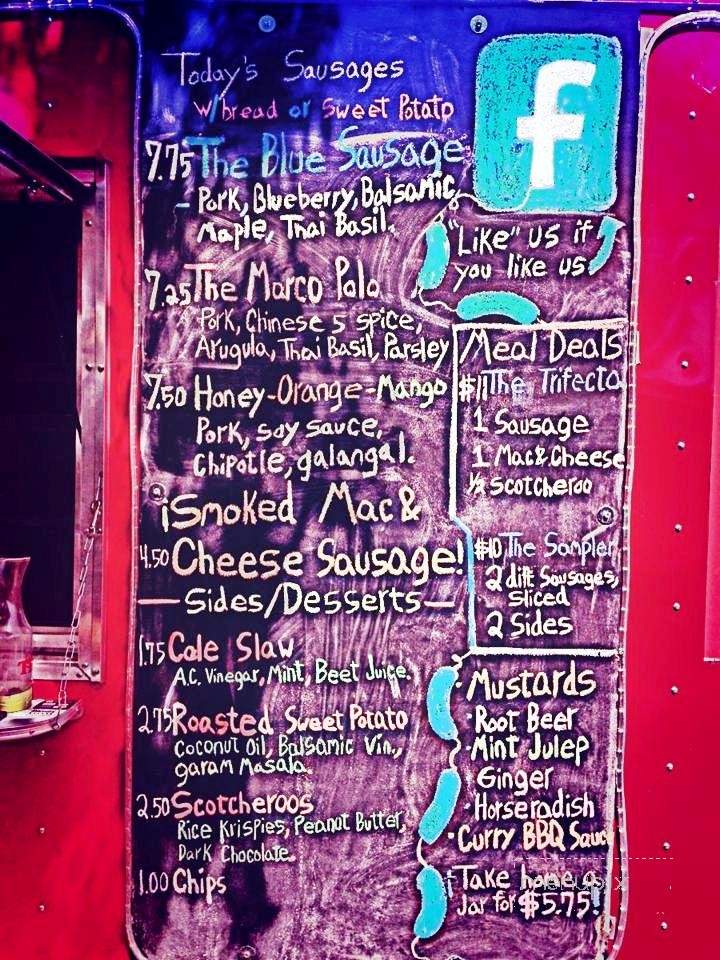 Today's Sausages
w/bread or Sweet Potato
7.75 The Blue Sausage
- Pork, Blueberry, Balsamic,
Maple, Thai Basil.
7.25 The Marco Polo
Pork, Chinese 5 spice,
Arugula, Thai Basil, Parsley
7.50 Honey-Orange-Mango
Pork, soy sauce,
Chipotle, galangal.
¡Smoked Mac &
4.50 Cheese Sausage!
— Sides/Desserts —
1.75 Cole Slaw
A.C. Vinegar, Mint, Beet Juice.
2.75 Roasted Sweet Potato
Coconut Oil, Balsamic Vin.,
garam Masala.
2.50 Scotcheroos
Rice Krispies, Peanut Butter,
Dark Chocolate
1.00 Chips
f
"Like" us if
you like us!
Meal Deals
$11 The Trifecta
1 Sausage
1 Mac & Cheese
½ Scotcheroo
$10 The Sampler
2 diff Sausages,
sliced
2 Sides
Mustards
· Root Beer
· Mint Julep
Ginger
· Horseradish
· Curry BBQ Sauce
Take home a
Jar for $5.75!